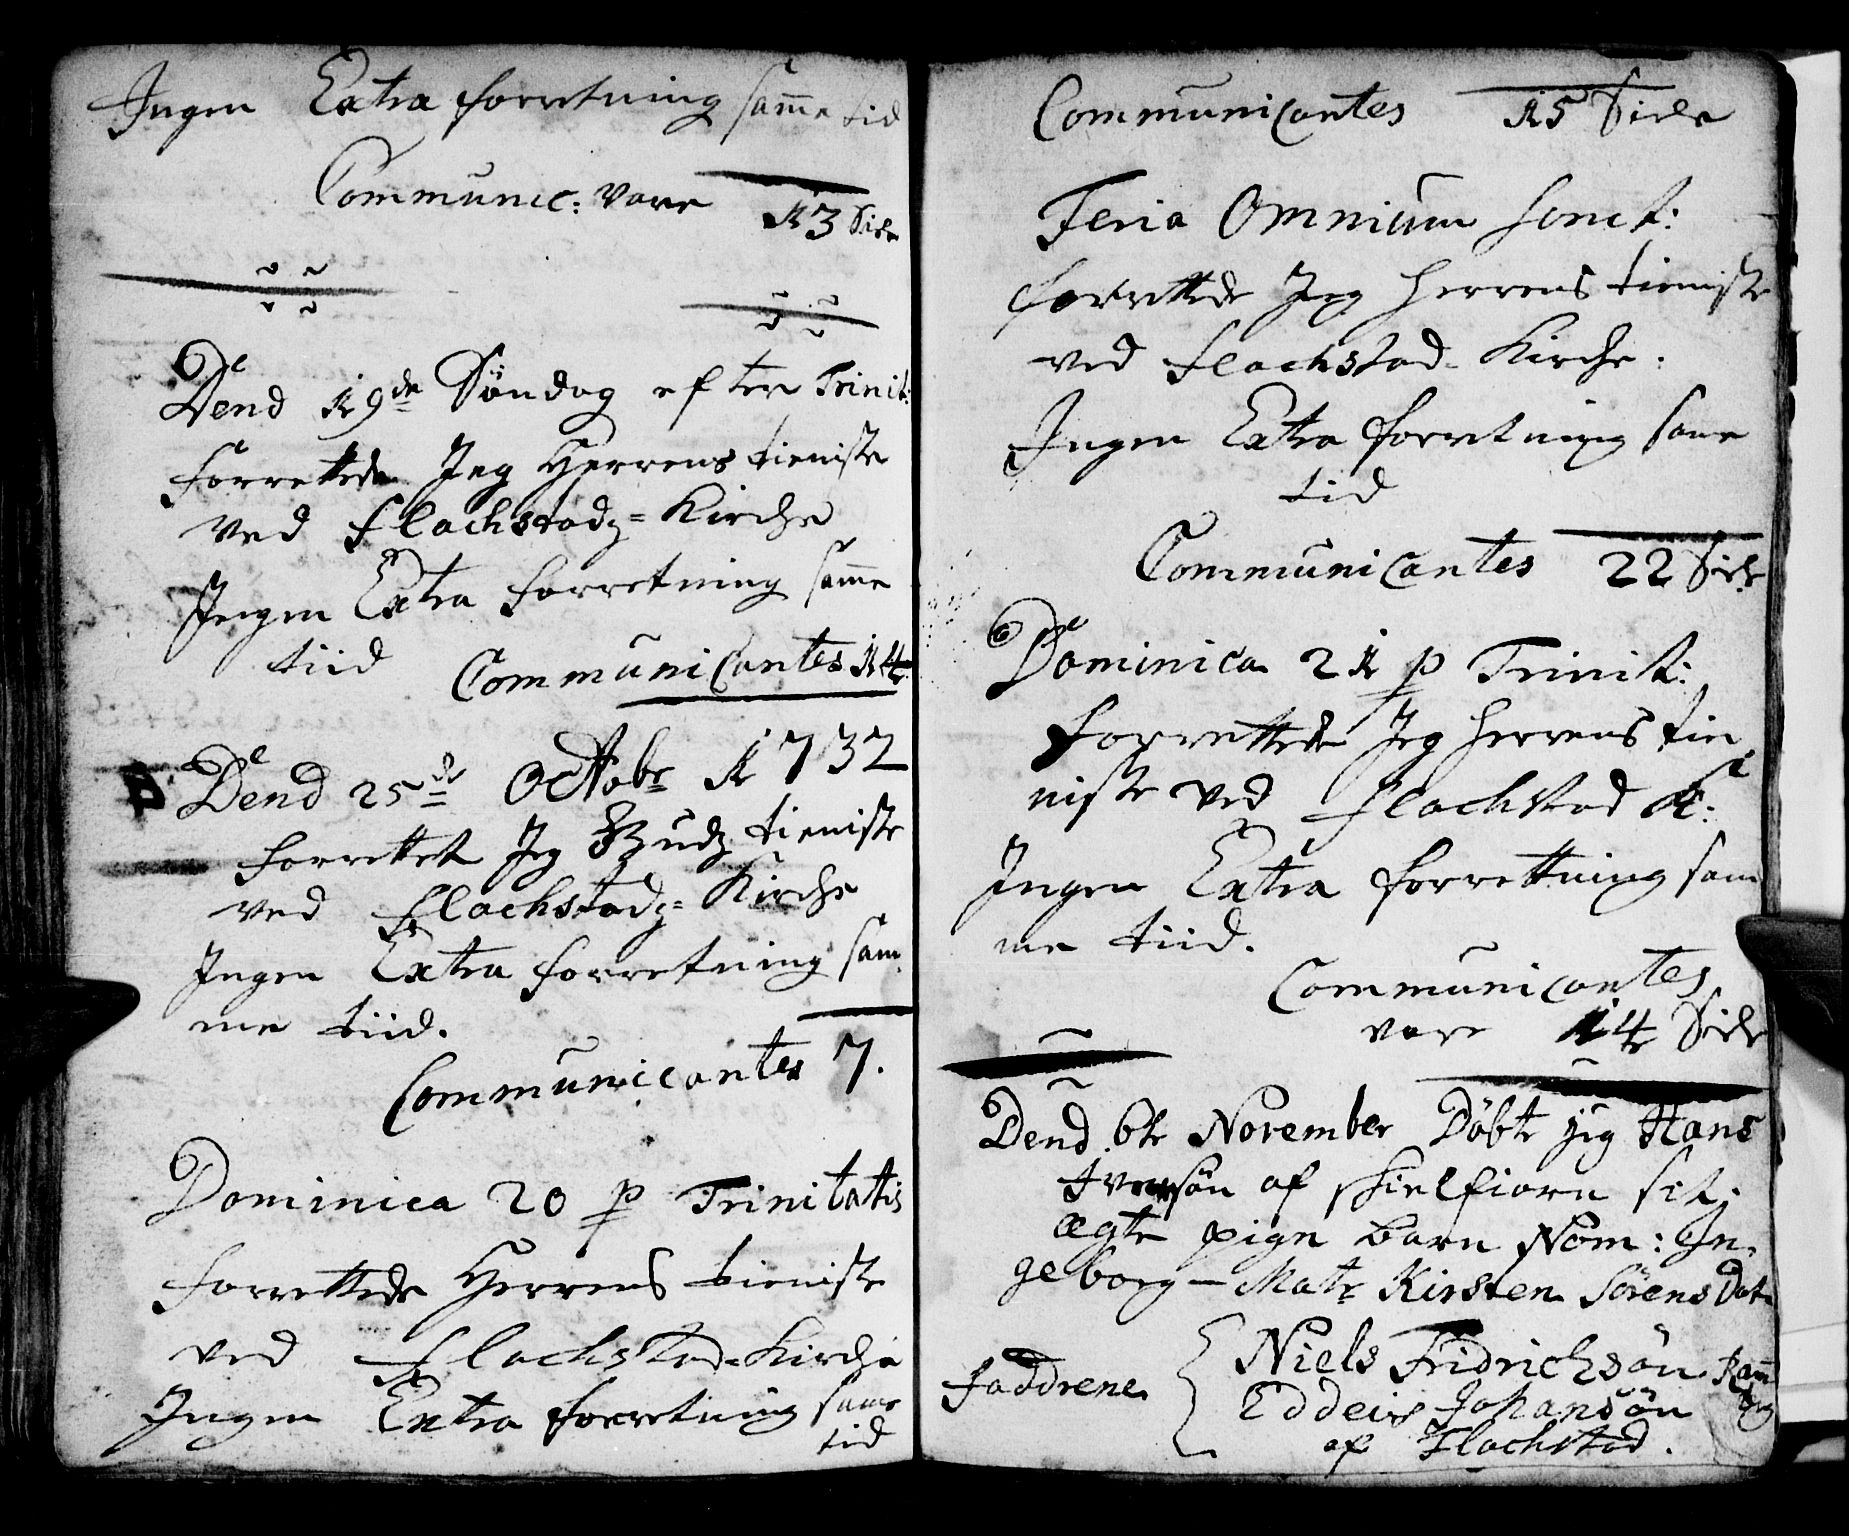 Ingen Extra forretning samme tid
Communic: vare 13 Siele
Dend 19de Søndag efter Trinit:
forrettede Jeg Herrens tieniste
ved Flachstadz=Kirche
Ingen Extra forretning samme
tiid Communicantes 14
Dend 25de Octobr 1732
forrettet Jeg Gudz tieniste
ved Flachstadz=Kirche
Ingen Extra forretning sam
me tiid.
Communicantes 7.
Dominica 20 p Trinitatis
forrettede Herrens tieniste
ved Flachstad=Kirche
Ingen Extra forretning same
tid
Communicantes 15 Siele
Feria Omnium Sanct:
forrettede Jeg Herrens tieniste
ved Flachstad=Kirche:
Ingen Extra forretning same
tid
Communicantes 22 Siele
Dominica 21 p Trinit:
forrettede Jeg Herrens tie
niste ved Flachstad K:
Ingen Extra forrettning sam
me tiid.
Communicantes
vare 14 Siele
Dend 6te November Døbte jeg Hans
Iversøn af Skielfiorn sit
ægte pige barn Nom: In
geborg - Matr Kirsten SørensDat
Faddrene Niels Fridrichsøn
Johansøn
af Flachstad.